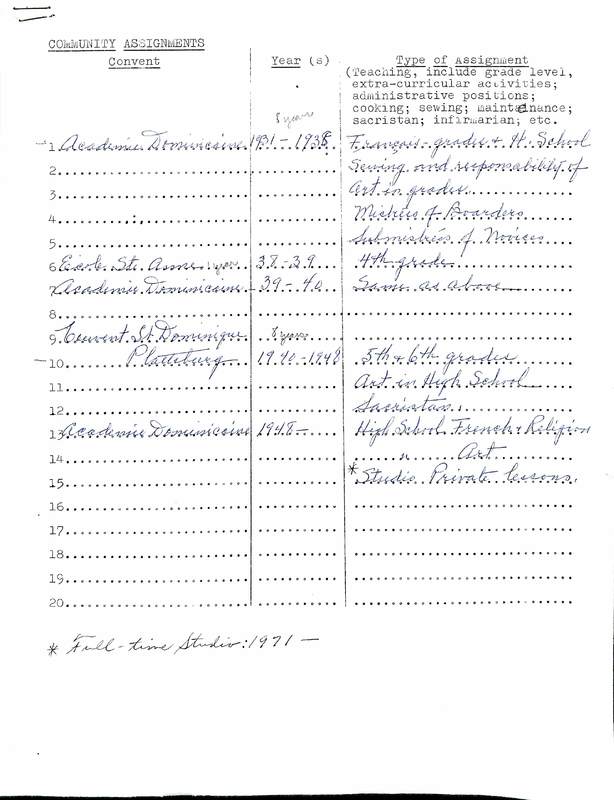 COMMUNITY ASSIGNMENTS
Convent Year (s) Type of Assignment
(Teaching, include grade level,
extra-curricular activities;
administrative positions;
cooking; sewing; maintenance;
sacristan; infirmarian; etc.
8 years
1 Académie Dominicaine 1931-1938 Français-grades & H. School
2 Sewing and responsibility of
3 Art in grades
4 Mistress of Boarders
5 Submistress of Novices
6 École Ste. Anne 1 year 38-39 4th grade
7 Académie Dominicaine 39-40 Same as above
8
9 Couvent St. Dominique 8 years
10 Plattsburg 1940-1948 5th & 6th grades
11 Art in High School
12 Sacristan
13 Académie Dominicaine 1948- High School French & Religion
14 " Art
15 * Studio Private lessons.
16
17
18
19
20
* Full-time Studio: 1971 —